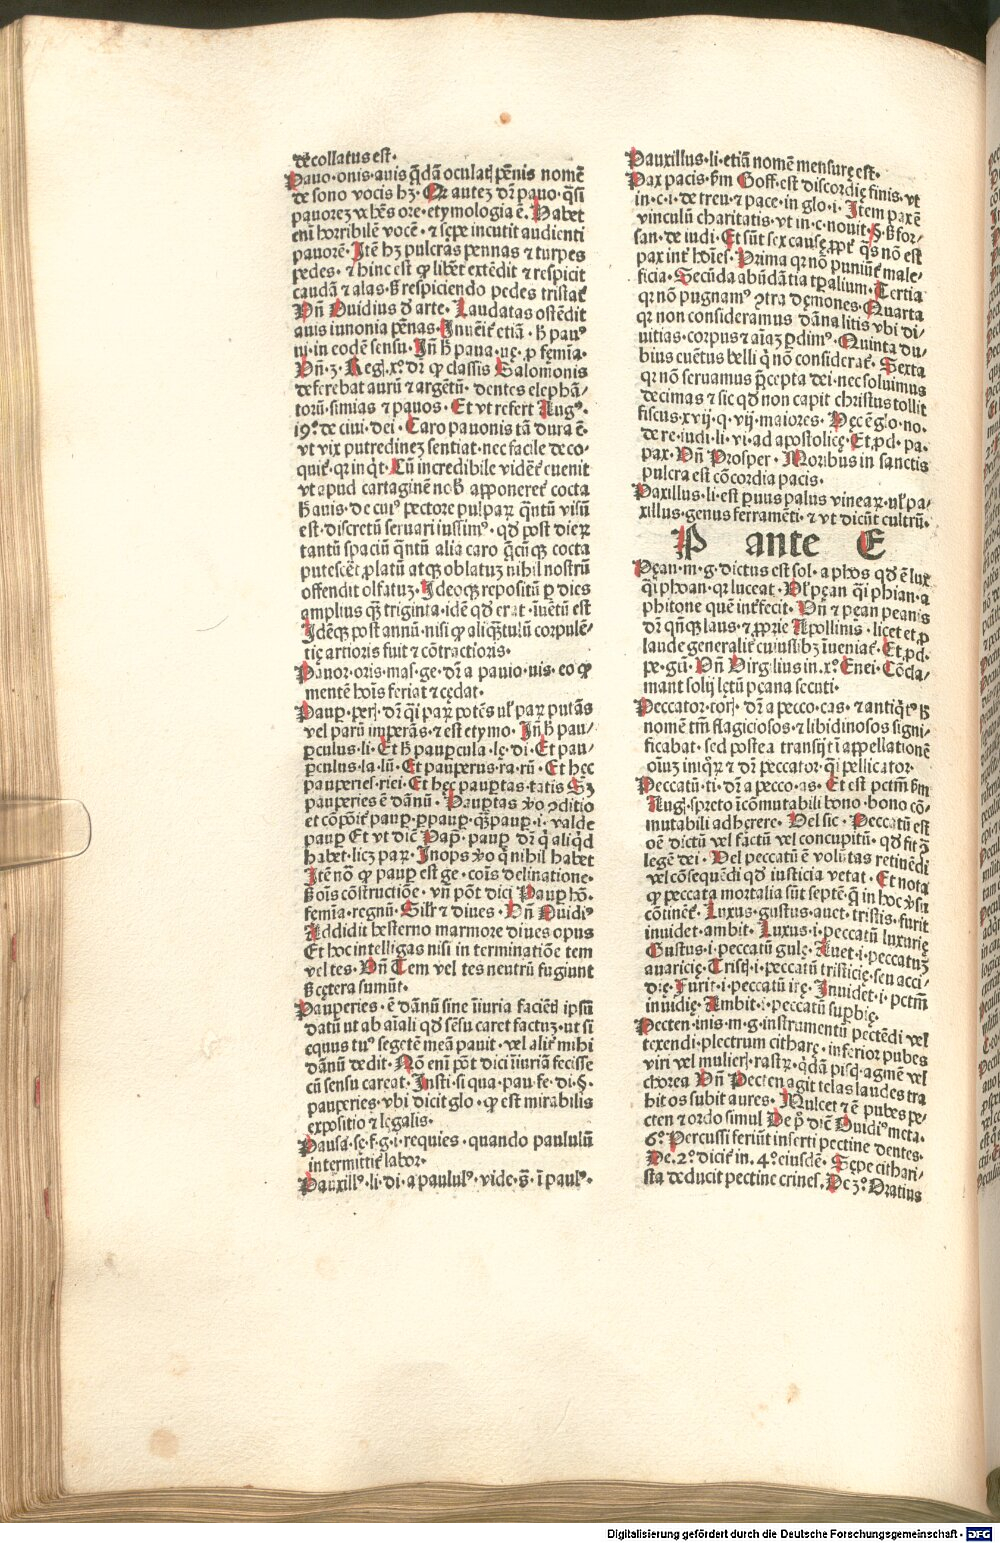 decollatus est·
Pauo·onis·auis q̄dã oculatꝭ pẽnis nomē
de sono vocis hꝫ· Qꝛ autē dr̄ pauo·q̄si
pauorē vr̄hẽs ore·etymologia ē. Habet
enī horribilē vocē·⁊ sępe incutit audienti
pauorē·Itē hꝫ pulcras pennas ⁊ turpes
pedes·⁊ hinc est ꝙ libēt extēdit ⁊ respicit
caudã ⁊ alas·ß respiciendo pedes tristat̄
Vñ Ouidius ď arte·Laudatas ostēdit
auis iunonia pēnas·Inuēit̄ etiã·h̄ pauꝰ
ui·in eodē sensu·Iñ h̄ paua·uę·ꝓ femĩa·
Vñ·3·Reg·xº·dr̄ ꝙ classis Salomonis
deferebat aurū ⁊ argētū·dentes elephã⸗
torū·simias ⁊ pauos·Et vt refert Augꝰ·
19º·de ciui·dei·Caro pauonis tã dura ē·
vt vix putredinē sentiat·nec facile deco⸗
quit̄·qꝛ inqͥt·Cū incredibile vidēt̄ euenit
vt apud cartaginē nob̄ apponeret̄ cocta
h̄ auis·de cuiꝰ pectore pulpaꝝ q̄ntū visū
est·discretū seruari iussimꝰ·qd̄ post dieꝝ
tantū spaciū q̄ntū alia caro q̄cūqꝫ cocta
putescēt ꝓlatū atqꝫ oblatuꝫ nihil nostrū
offendit olfatuꝫ·Ideoqꝫ repositū ꝑ dies
amplius qꝫ triginta·idē qd̄ erat·īuētū est
Idēqꝫ post annū·nisi ꝙ aliqꝫtulū corpulē⸗
tię artioris fuit ⁊ cōtractioris·
Pauor·oris·mas·ge·dr̄ a pauio·uis·eo ꝙ
mentē hoīs feriat ⁊ cędat·
Pauꝑ·ꝑis·dr̄ qͥi paꝝ potēs ul' paꝝ putãs
vel parū imperãs·⁊ est etymo·Iñ h̄ pau⸗
ꝑculus·li·Et h̄ pauꝑcula·lę·di·Et pau⸗
ꝑculus·la·lū·Et pauperus·ra·rū·Et hęc
pauperies·riei·Et hęc pauꝑtas·tatis Sꝫ
pauperies ē dãnū·Pauꝑtas ꝟo ꝯditio
et cōpōit̄ pauꝑ·ꝑpauꝑ·qꝫpauꝑ·i·valde
pauꝑ Et vt diē Pap̄·pauꝑ dr̄ q̄ aliqͥd
habet·licꝫ paꝝ·Inops ꝟo q̄ nihil habet
Itē nō ꝙ pauꝑ est ge·cōis·delinatione·
ß oīs cōstructiōe·vñ pōt dici Pauꝑ hō·
femĩa·regnū·Silr̄ ⁊ diues·Vñ Ouidiꝰ
Addidit hesterno marmore diues opus
Et hoc intelligas nisi in terminatiōe tem
vel tes·Vñ Tem vel tes neutrū fugiunt
ß cętera sumūt·
Pauꝑeries·ē dãnū sine īiuria faciēti ipsū
datū ut ab aīali qd̄ sēsu caret factuꝫ·ut si
equus tuꝰ segetē meã pauit·vel alit̄ mihi
dãnū dedit·Nō enī pōt dici īiuriã fecisse
cū sensu careat·Insti·si qua·pau·fe·di·§·
pauperies·vbi dicit glo·ꝙ est mirabilis
expositio ⁊ legalis·
Pausa·sę·f·g·i·requies·quando paululū
intermittit̄ labor·
Pauxillꝰ·li·di·a paululꝰ·vide·s̄·ī paulꝰ·
Pauxillus·li·etiã nomē mensurę est·
Pax pacis·ẜm Goff·est discordię finis·vt
in·c·i·de treu·⁊ pace·in glo·i·Item pax ē
vinculū charitatis·vt in·c·nouit·§·ß for⸗
san·de iudi·Et sūt sex causę ꝓpt̄ q̄s nō est
pax int̄ hoīes·Prima qꝛ nō puniūt̄ male⸗
ficia·Secūda abūdãtia tꝑalium·Tertia
qꝛ nō pugnamꝰ ꝯtra dęmones·Quarta
qꝛ non consideramus dãna litis vbi di⸗
uitias·corpus ⁊ aīaꝫ ꝑdimꝰ·Quinta du⸗
bius euētus belli q̄ nō considerat̄·Sexta
qꝛ nō seruamus p̄cepta dei·nec soluimus
decimas ⁊ sic qd̄ non capit christus tollit
fiscus·xvij·q·vij·maiores·Pec ē glo·no·
de re·iudi·li·vi·ad apostolicę·Et ꝓd·pa·
pax·Vñ Prosper·Moribus in sanctis
pulcra est cōcordia pacis·
Paxillus·li·est ꝑuus palus vineaꝝ·ul' pa⸗
xillus·genus ferramēti·⁊ vt dicūt cultrū·
P ante E
Pęan·m·g·dictus est sol·a phos qd̄ ē lux
qͥi phoan·qꝛ luceat·Vl' pęan qͥi phian·a
phitone quē int̄fecit·Vñ ⁊ pęan peanis
dr̄ qn̄qꝫ laus·⁊ ꝓprie Apollinis·licet et ꝓ
laude generalit̄ cuiuslibꝫ īueniat̄·Et ꝓd·
pe·giñ·Vñ Virgilius in·xº·Enei·Cōcla⸗
mant solij lętū pęana secuti·
Peccator·toris·dr̄ a pecco·cas·⁊ antiqͥtꝰ h̄
nomē tm̄ flagiciosos·⁊ libidinosos signi⸗
ficabat·sed postea transijt ī appellationē
oīuꝫ iniqͥꝝ ⁊ dr̄ peccator·qͥi pellicator·
Peccatū·ti·dr̄ a pecco·as·Et est pctm̄ ẜm
Aug·spreto īcōmutabili bono·bono cō⸗
mutabili adhęrere·Vel sic·Peccatū est
oē dictū vel factū vel concupitū·qd̄ fit ꝯ̄
legē dei·Vel peccatū ē volūtas retinēdi
vel cōsequēdi qd̄ iusticia vetat·Et nota
ꝙ peccata mortalia sūt septē·q̄ in hoc ꝟsu
cōtinēt̄·Luxus·gustus·auet·tristis·furit
inuidet·ambit·Luxus·i·peccatū luxurię
Gustus·i·peccatū gulę·Auet·i·peccatuꝫ
auaricię·Tristꝭ·i·peccatū tristicię·seu acci⸗
dię·Furit·i·peccatū irę·Inuidet·i·pctm̄
inuidię·Ambit·i·peccatū suꝑbię·
Pecten·inis·m·g·instrumentū pectēdi vel
texendi·plectrum citharę·inferior pubes
viri vel mulierꝭ·rastꝝ·q̄dã piscꝭ·agmē vel
chorea Vñ Pecten agit telas laudes tra
hit os subit aures·Mulcet ⁊ ē pubes pe⸗
cten ⁊ ordo simul De pͥ diē Ouidiꝰ meta·
6º·Percussi feriūt inserti pectine dentes·
De·2º·dicit̄ in·4º·eiusdē·Sępe cithari⸗
sta deducit pectine crines·De 3º·Oratius
Digitalisierung gefördert durch die Deutsche Forschungsgemeinschaft - DFG